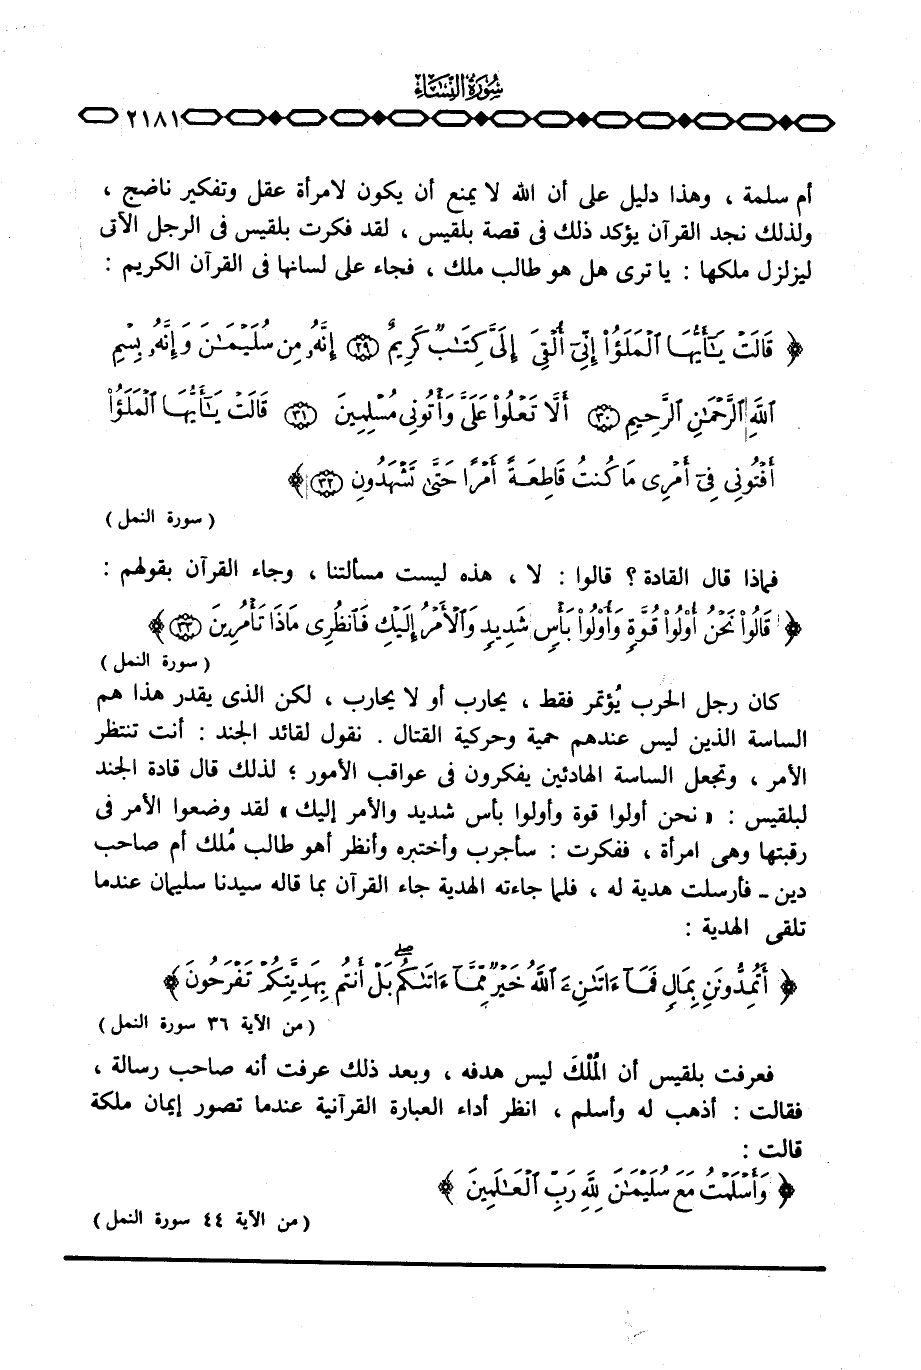 سُورَةُ النِّسَاءِ
٢١٨١
أم سلمة ، وهذا دليل على أن الله لا يمنع أن يكون لامرأة عقل وتفكير ناضج ،
ولذلك نجد القرآن يؤكد ذلك فى قصة بلقيس ، لقد فكرت بلقيس فى الرجل الآتى
ليزلزل ملكها : يا ترى هل هو طالب ملك ، فجاء على لسانها فى القرآن الكريم :
﴿ قَالَتْ يَٰٓأَيُّهَا ٱلْمَلَؤُا۟ إِنِّىٓ أُلْقِىَ إِلَىَّ كِتَٰبٌ كَرِيمٌ ٢٩ إِنَّهُۥ مِن سُلَيْمَٰنَ وَإِنَّهُۥ بِسْمِ
ٱللَّهِ ٱلرَّحْمَٰنِ ٱلرَّحِيمِ ٣٠ أَلَّا تَعْلُوا۟ عَلَىَّ وَأْتُونِى مُسْلِمِينَ ٣١ قَالَتْ يَٰٓأَيُّهَا ٱلْمَلَؤُا۟
أَفْتُونِى فِىٓ أَمْرِى مَا كُنتُ قَاطِعَةً أَمْرًا حَتَّىٰ تَشْهَدُونِ ٣٢ ﴾
( سورة النمل )
فماذا قال القادة ؟ قالوا : لا ، هذه ليست مسألتنا ، وجاء القرآن بقولهم :
﴿ قَالُوا۟ نَحْنُ أُو۟لُوا۟ قُوَّةٍ وَأُو۟لُوا۟ بَأْسٍ شَدِيدٍ وَٱلْأَمْرُ إِلَيْكِ فَٱنظُرِى مَاذَا تَأْمُرِينَ ٣٣ ﴾
( سورة النمل )
كان رجل الحرب يُؤتمر فقط ، يحارب أو لا يحارب ، لكن الذى يقدر هذا هم
الساسة الذين ليس عندهم حمية وحركية القتال . نقول لقائد الجند : أنت تنتظر
الأمر ، وتجعل الساسة الهادئين يفكرون فى عواقب الأمور ؛ لذلك قال قادة الجند
لبلقيس : « نحن أولوا قوة وأولوا بأس شديد والأمر إليك » لقد وضعوا الأمر فى
رقبتها وهى امرأة ، ففكرت : سأجرب وأختبره وأنظر أهو طالب مُلك أم صاحب
دين ـ فأرسلت هدية له ، فلما جاءته الهدية جاء القرآن بما قاله سيدنا سليمان عندما
تلقى الهدية :
﴿ أَتُمِدُّونَنِ بِمَالٍ فَمَآ ءَاتَىٰنِۦَ ٱللَّهُ خَيْرٌ مِّمَّآ ءَاتَىٰكُمۖ بَلْ أَنتُم بِهَدِيَّتِكُمْ تَفْرَحُونَ ﴾
( من الآية ٣٦ سورة النمل )
فعرفت بلقيس أن المُلْكَ ليس هدفه ، وبعد ذلك عرفت أنه صاحب رسالة ،
فقالت : أذهب له وأسلم ، انظر أداء العبارة القرآنية عندما تصور إيمان ملكة
قالت :
﴿ وَأَسْلَمْتُ مَعَ سُلَيْمَٰنَ لِلَّهِ رَبِّ ٱلْعَٰلَمِينَ ﴾
( من الآية ٤٤ سورة النمل )